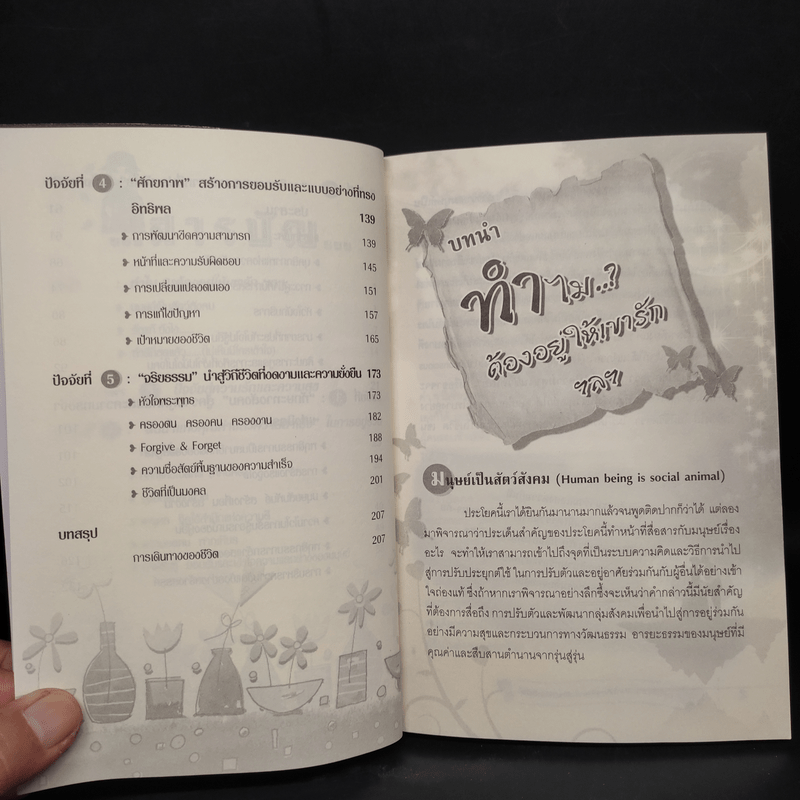 ปัจจัยที่ 4 : “ศักยภาพ” สร้างการยอมรับและแบบอย่างที่ทรง
อิทธิพล 139
การพัฒนาขีดความสามารถ 139
หน้าที่และความรับผิดชอบ 145
การเปลี่ยนแปลงตนเอง 151
การแก้ไขปัญหา 157
เป้าหมายของชีวิต 165
ปัจจัยที่ 5 : “จริยธรรม” นำสู่วิถีชีวิตที่งดงามและความยั่งยืน 173
หัวใจพระพุทธ 173
ครองตน ครองคน ครองงาน 182
Forgive & Forget 188
ความซื่อสัตย์พื้นฐานของความสำเร็จ 194
ชีวิตที่เป็นมงคล 201
บทสรุป 207
การเดินทางของชีวิต 207
บทนำ
ทำไม..?
ต้องอยู่ให้เขารัก
ฯลฯ
มนุษย์เป็นสัตว์สังคม (Human being is social animal)
ประโยคนี้เราได้ยินกันมานานมากแล้วจนพูดติดปากก็ว่าได้ แต่ลอง
มาพิจารณาว่าประเด็นสำคัญของประโยคนี้ทำหน้าที่สื่อสารกับมนุษย์เรื่อง
อะไร จะทำให้เราสามารถเข้าไปถึงจุดที่เป็นระบบความคิดและวิธีการนำไป
สู่การปรับประยุกต์ใช้ ในการปรับตัวและอยู่อาศัยร่วมกันกับผู้อื่นได้อย่างเข้า
ใจถ่องแท้ ซึ่งถ้าหากเราพิจารณาอย่างลึกซึ้งจะเห็นว่าคำกล่าวนี้มีนัยสำคัญ
ที่ต้องการสื่อถึง การปรับตัวและพัฒนากลุ่มสังคมเพื่อนำไปสู่การอยู่ร่วมกัน
อย่างมีความสุขและกระบวนการทางวัฒนธรรม อารยะธรรมของมนุษย์ที่มี
คุณค่าและสืบสานตำนานจากรุ่นสู่รุ่น